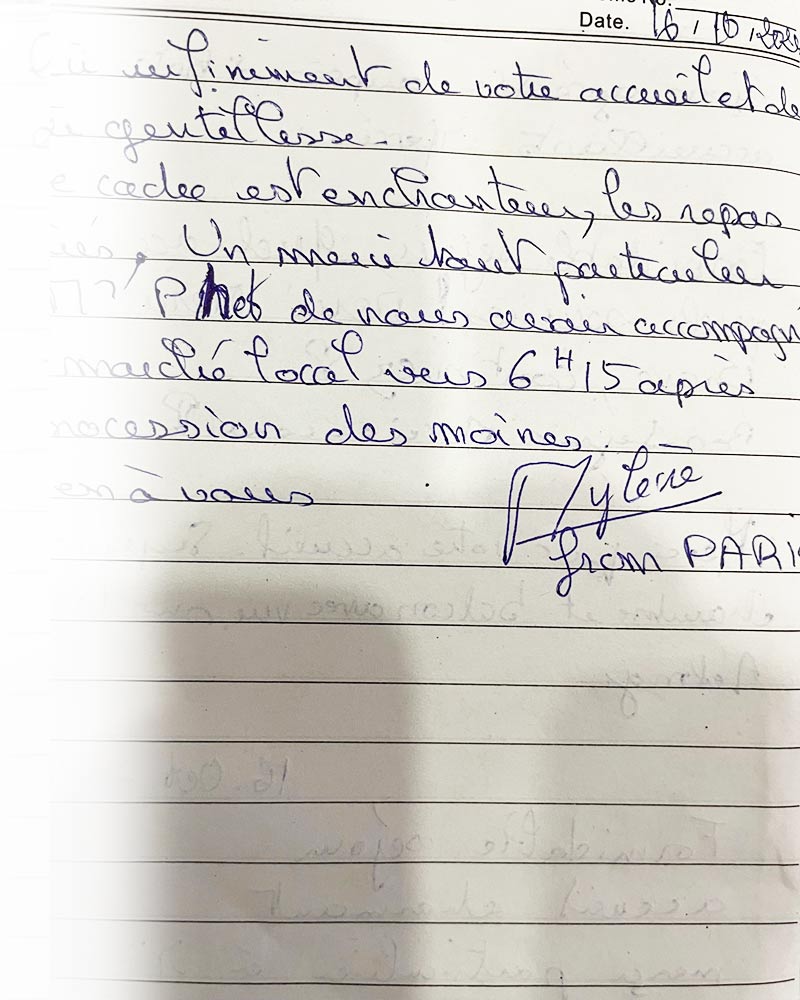 Date. 16, 10, 202
infiniment de votre accueil et de
gentillesse.
e cadre est enchanteur, les repas
és. Un merci tout particulier
Phet de nous avoir accompagn
marché local vers 6H15 après
rocession des moines.
en à vous
Mylène
from PARIS